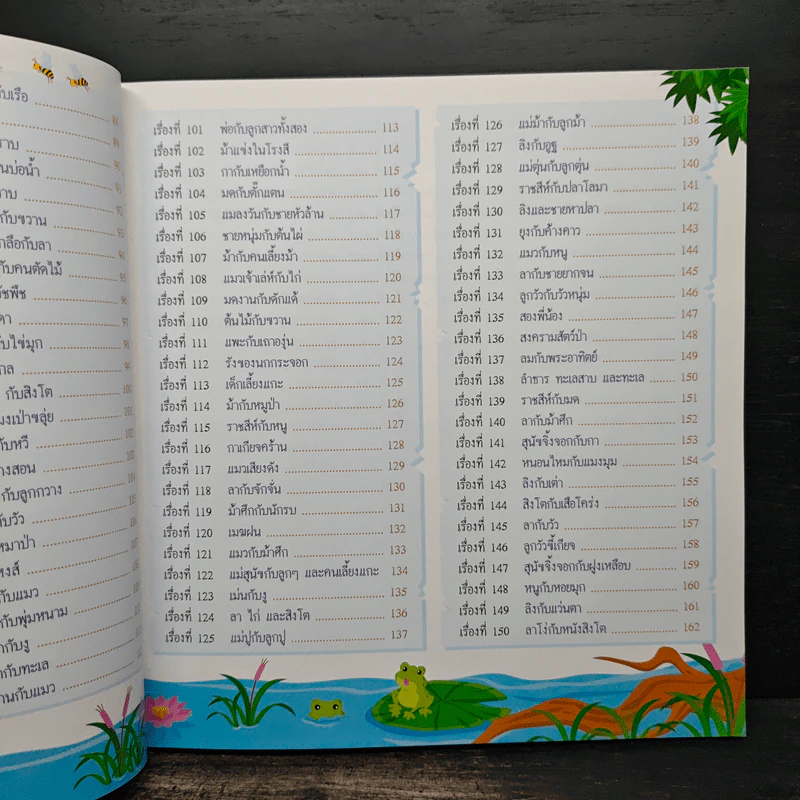 กับเรือ
88
89
ราบ 90
นบ่อน้ำ 91
าบ 92
กับขวาน 93
กลือกับลา 94
กับคนตัดไม้ 95
ัชพืช 96
ดา 97
ับไข่มุก 98
กล 99
กับสิงโต 100
มงเป่าขลุ่ย 101
กับหวี 102
างสอน 103
กับลูกกวาง 104
กับวัว 105
หมาป่า 106
หงส์ 107
กับแมว 108
กับพุ่มหนาม 109
กับงู 110
ากับทะเล 111
านกับแมว 112
เรื่องที่ 101 พ่อกับลูกสาวทั้งสอง 113
เรื่องที่ 102 ม้าแข่งในโรงสี 114
เรื่องที่ 103 กากับเหยือกน้ำ 115
เรื่องที่ 104 มดกับตั๊กแตน 116
เรื่องที่ 105 แมลงวันกับชายหัวล้าน 117
เรื่องที่ 106 ชายหนุ่มกับต้นไผ่ 118
เรื่องที่ 107 ม้ากับคนเลี้ยงม้า 119
เรื่องที่ 108 แมวเจ้าเล่ห์กับไก่ 120
เรื่องที่ 109 มดงานกับดักแด้ 121
เรื่องที่ 110 ต้นไม้กับขวาน 122
เรื่องที่ 111 แพะกับเถาองุ่น 123
เรื่องที่ 112 รังของนกกระจอก 124
เรื่องที่ 113 เด็กเลี้ยงแกะ 125
เรื่องที่ 114 ม้ากับหมูป่า 126
เรื่องที่ 115 ราชสีห์กับหนู 127
เรื่องที่ 116 กาเกียจคร้าน 128
เรื่องที่ 117 แมวเสียงดัง 129
เรื่องที่ 118 ลากับจักจั่น 130
เรื่องที่ 119 ม้าศึกกับนักรบ 131
เรื่องที่ 120 เมฆฝน 132
เรื่องที่ 121 แมวกับม้าศึก 133
เรื่องที่ 122 แม่สุนัขกับลูกๆ และคนเลี้ยงแกะ 134
เรื่องที่ 123 เม่นกับงู 135
เรื่องที่ 124 ลา ไก่ และสิงโต 136
เรื่องที่ 125 แม่ปูกับลูกปู 137
เรื่องที่ 126 แม่ม้ากับลูกม้า 138
เรื่องที่ 127 ลิงกับอูฐ 139
เรื่องที่ 128 แม่ตุ่นกับลูกตุ่น 140
เรื่องที่ 129 ราชสีห์กับปลาโลมา 141
เรื่องที่ 130 ลิงและชายหาปลา 142
เรื่องที่ 131 ยุงกับค้างคาว 143
เรื่องที่ 132 แมวกับหนู 144
เรื่องที่ 133 ลากับชายยากจน 145
เรื่องที่ 134 ลูกวัวกับวัวหนุ่ม 146
เรื่องที่ 135 สองพี่น้อง 147
เรื่องที่ 136 สงครามสัตว์ป่า 148
เรื่องที่ 137 ลมกับพระอาทิตย์ 149
เรื่องที่ 138 ลำธาร ทะเลสาบ และทะเล 150
เรื่องที่ 139 ราชสีห์กับมด 151
เรื่องที่ 140 ลากับม้าศึก 152
เรื่องที่ 141 สุนัขจิ้งจอกกับกา 153
เรื่องที่ 142 หนอนไหมกับแมงมุม 154
เรื่องที่ 143 ลิงกับเต่า 155
เรื่องที่ 144 สิงโตกับเสือโคร่ง 156
เรื่องที่ 145 ลากับวัว 157
เรื่องที่ 146 ลูกวัวขี้เกียจ 158
เรื่องที่ 147 สุนัขจิ้งจอกกับฝูงเหลือบ 159
เรื่องที่ 148 หนูกับหอยมุก 160
เรื่องที่ 149 ลิงกับแว่นตา 161
เรื่องที่ 150 ลาโง่กับหนังสิงโต 162